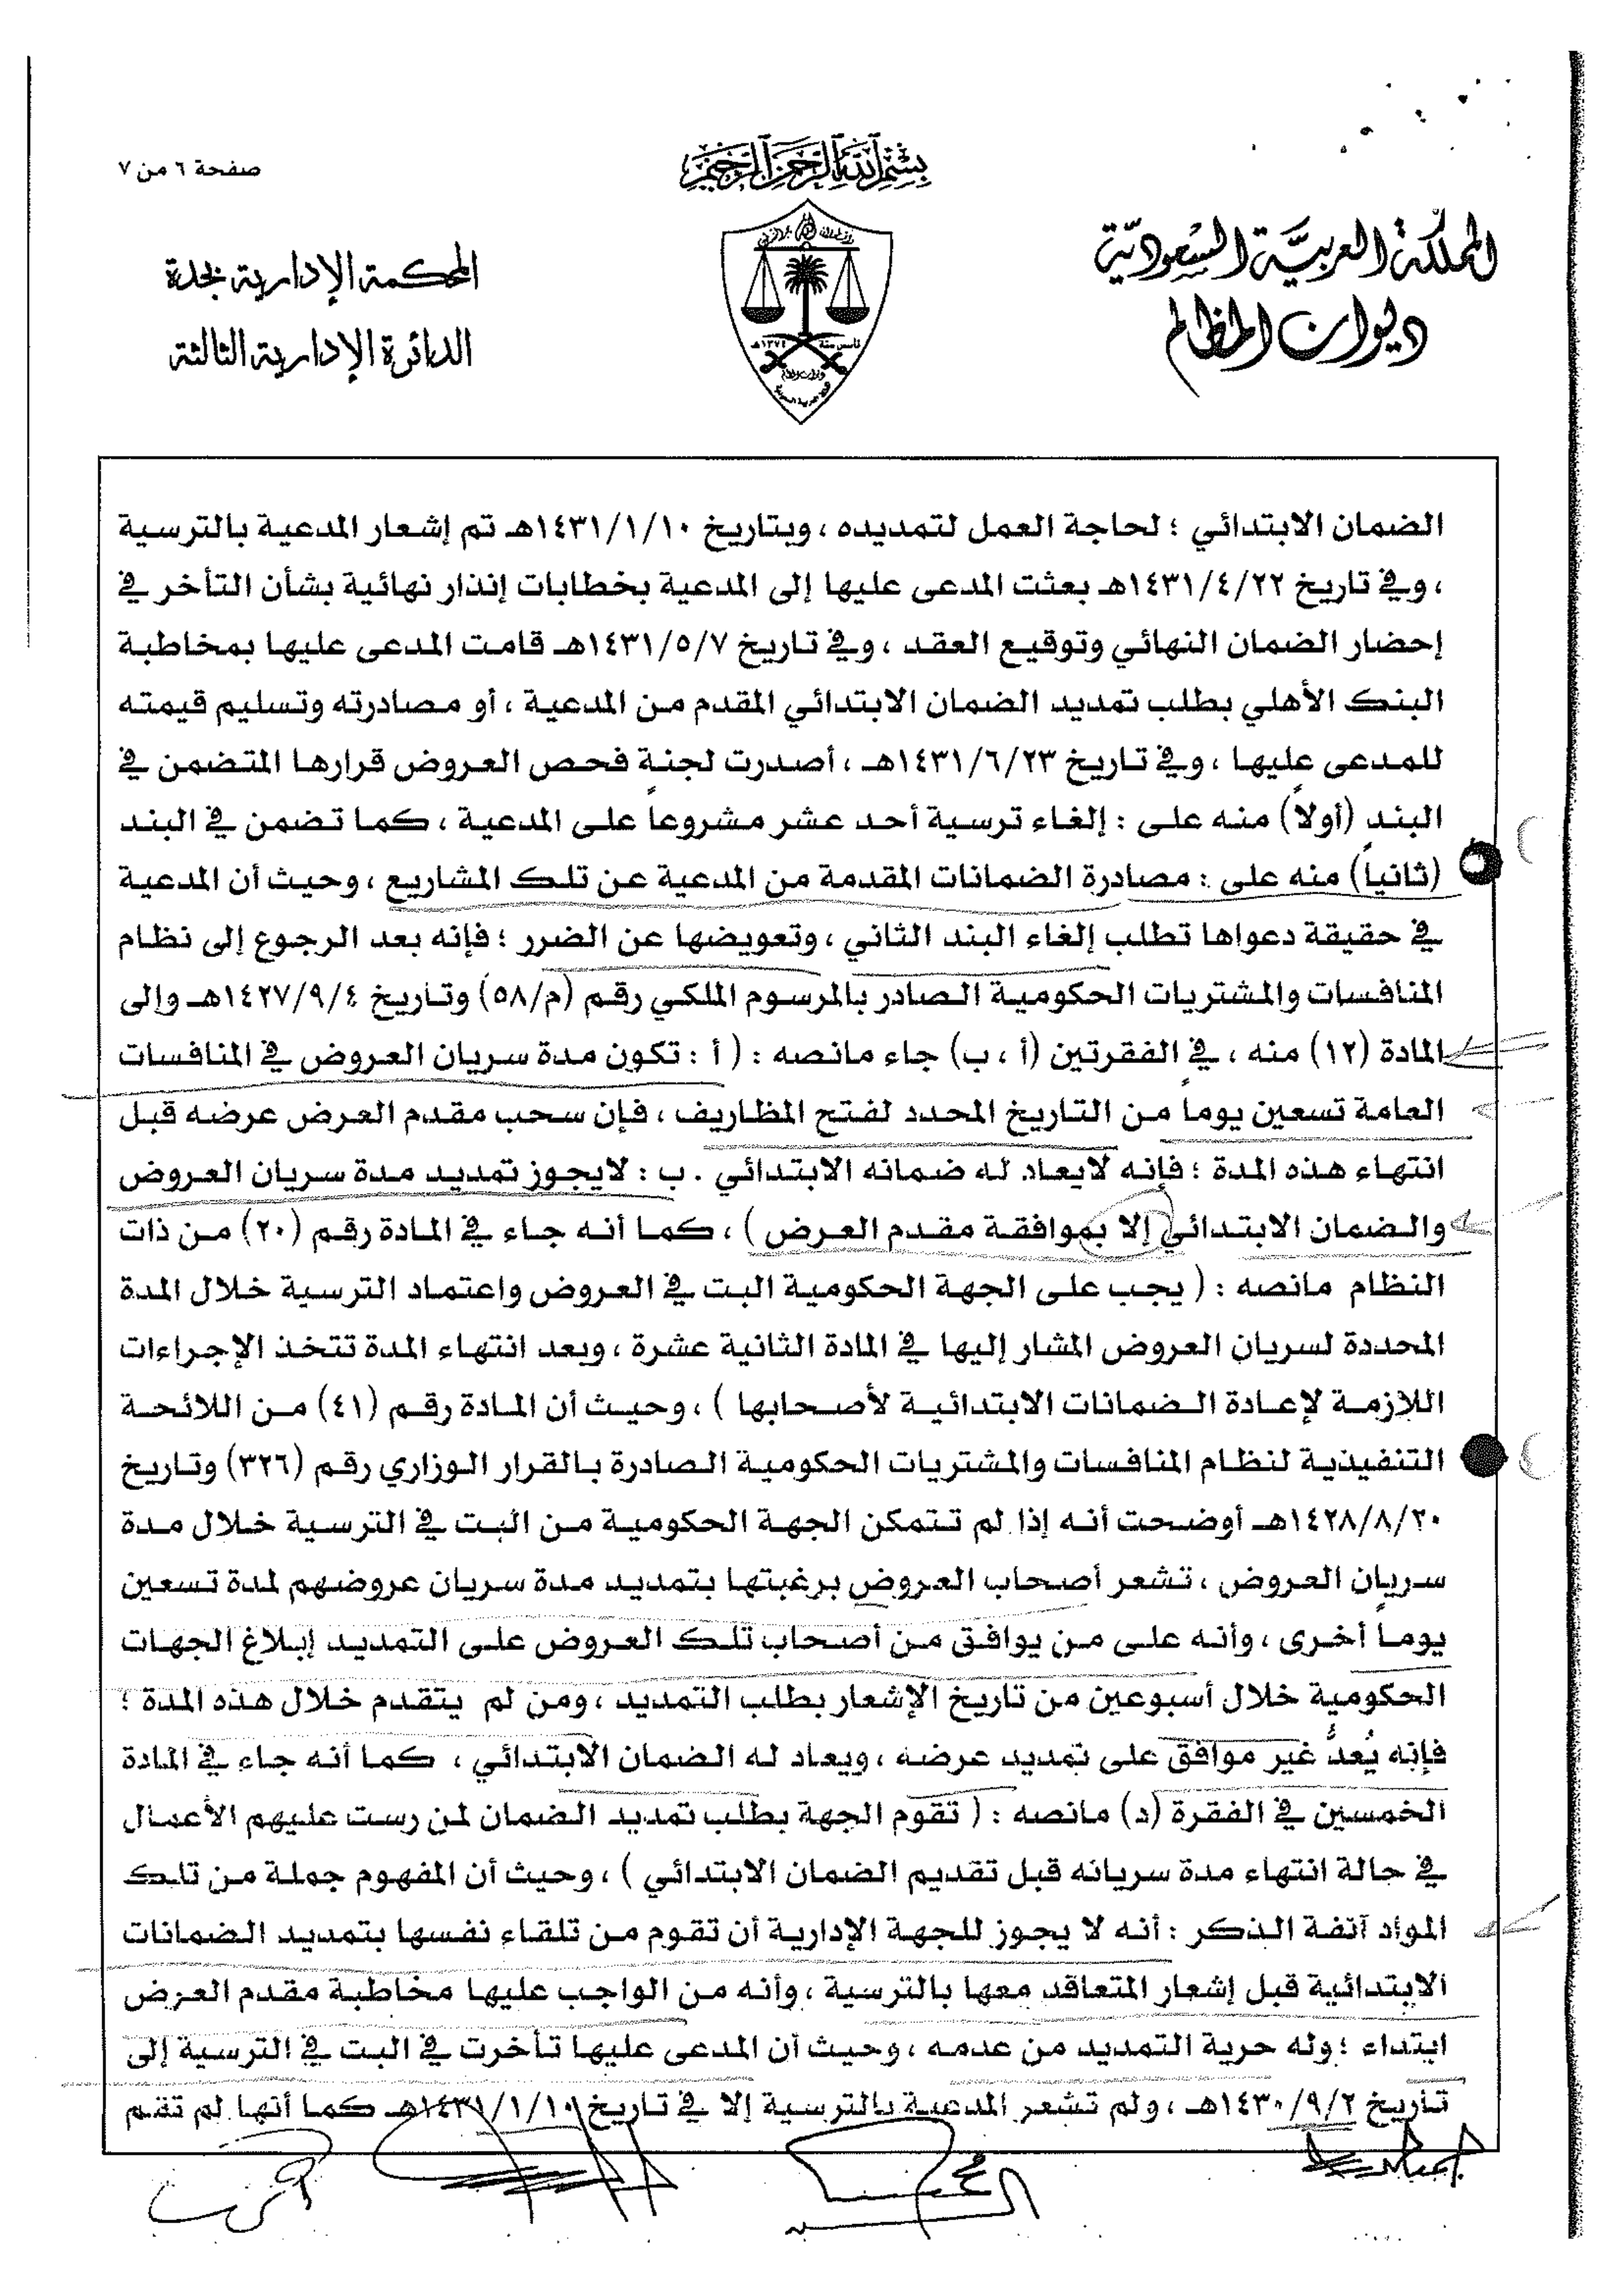 صفحة ٦ من ٧
بسم الله الرحمن الرحيم
المملكة العربية السعودية
ديوان المظالم
المحكمة الإدارية بجدة
الدائرة الإدارية الثالثة
تأسس سنة ١٣٧٤هـ
الضمان الابتدائي ؛ لحاجة العمل لتمديده ، وبتاريخ ١٤٣١/١/١٠هـ تم إشعار المدعية بالترسية
، وفي تاريخ ١٤٣١/٤/٢٢هـ بعثت المدعى عليها إلى المدعية بخطابات إنذار نهائية بشأن التأخر في
إحضار الضمان النهائي وتوقيع العقد ، وفي تاريخ ١٤٣١/٥/٧هـ قامت المدعى عليها بمخاطبة
البنك الأهلي بطلب تمديد الضمان الابتدائي المقدم من المدعية ، أو مصادرته وتسليم قيمته
للمدعى عليها ، وفي تاريخ ١٤٣١/٦/٢٣هـ ، أصدرت لجنة فحص العروض قرارها المتضمن في
البند (أولاً) منه على : إلغاء ترسية أحد عشر مشروعاً على المدعية ، كما تضمن في البند
(ثانياً) منه على : مصادرة الضمانات المقدمة من المدعية عن تلك المشاريع ، وحيث أن المدعية
في حقيقة دعواها تطلب إلغاء البند الثاني ، وتعويضها عن الضرر ؛ فإنه بعد الرجوع إلى نظام
المنافسات والمشتريات الحكومية الصادر بالمرسوم الملكي رقم (م/٥٨) وتاريخ ١٤٢٧/٩/٤هـ وإلى
المادة (١٢) منه ، في الفقرتين (أ ، ب) جاء مانصه : ( أ : تكون مدة سريان العروض في المنافسات
العامة تسعين يوماً من التاريخ المحدد لفتح المظاريف ، فإن سحب مقدم العرض عرضه قبل
انتهاء هذه المدة ؛ فإنه لايعاد له ضمانه الابتدائي . ب : لايجوز تمديد مدة سريان العروض
والضمان الابتدائي إلا بموافقة مقدم العرض ) ، كما أنه جاء في المادة رقم (٢٠) من ذات
النظام مانصه : ( يجب على الجهة الحكومية البت في العروض واعتماد الترسية خلال المدة
المحددة لسريان العروض المشار إليها في المادة الثانية عشرة ، وبعد انتهاء المدة تتخذ الإجراءات
اللازمة لإعادة الضمانات الابتدائية لأصحابها ) ، وحيث أن المادة رقم (٤١) من اللائحة
التنفيذية لنظام المنافسات والمشتريات الحكومية الصادرة بالقرار الوزاري رقم (٣٢٦) وتاريخ
١٤٢٨/٨/٢٠هـ أوضحت أنه إذا لم تتمكن الجهة الحكومية من البت في الترسية خلال مدة
سريان العروض ، تشعر أصحاب العروض برغبتها بتمديد مدة سريان عروضهم لمدة تسعين
يوماً أخرى ، وأنه على من يوافق من أصحاب تلك العروض على التمديد إبلاغ الجهات
الحكومية خلال أسبوعين من تاريخ الإشعار بطلب التمديد ، ومن لم يتقدم خلال هذه المدة ؛
فإنه يُعدُّ غير موافق على تمديد عرضه ، ويعاد له الضمان الابتدائي ، كما أنه جاء في المادة
الخمسين في الفقرة (د) مانصه : ( تقوم الجهة بطلب تمديد الضمان لمن رست عليهم الأعمال
في حالة انتهاء مدة سريانه قبل تقديم الضمان الابتدائي ) ، وحيث أن المفهوم جملة من تلك
المواد آنفة الذكر : أنه لا يجوز للجهة الإدارية أن تقوم من تلقاء نفسها بتمديد الضمانات
الابتدائية قبل إشعار المتعاقد معها بالترسية ، وأنه من الواجب عليها مخاطبة مقدم العرض
ابتداء ؛ وله حرية التمديد من عدمه ، وحيث أن المدعى عليها تأخرت في البت في الترسية إلى
تاريخ ١٤٣٠/٩/٢هـ ، ولم تشعر المدعية بالترسية إلا في تاريخ ١٤٣١/١/١٠هـ كما أنها لم تقم